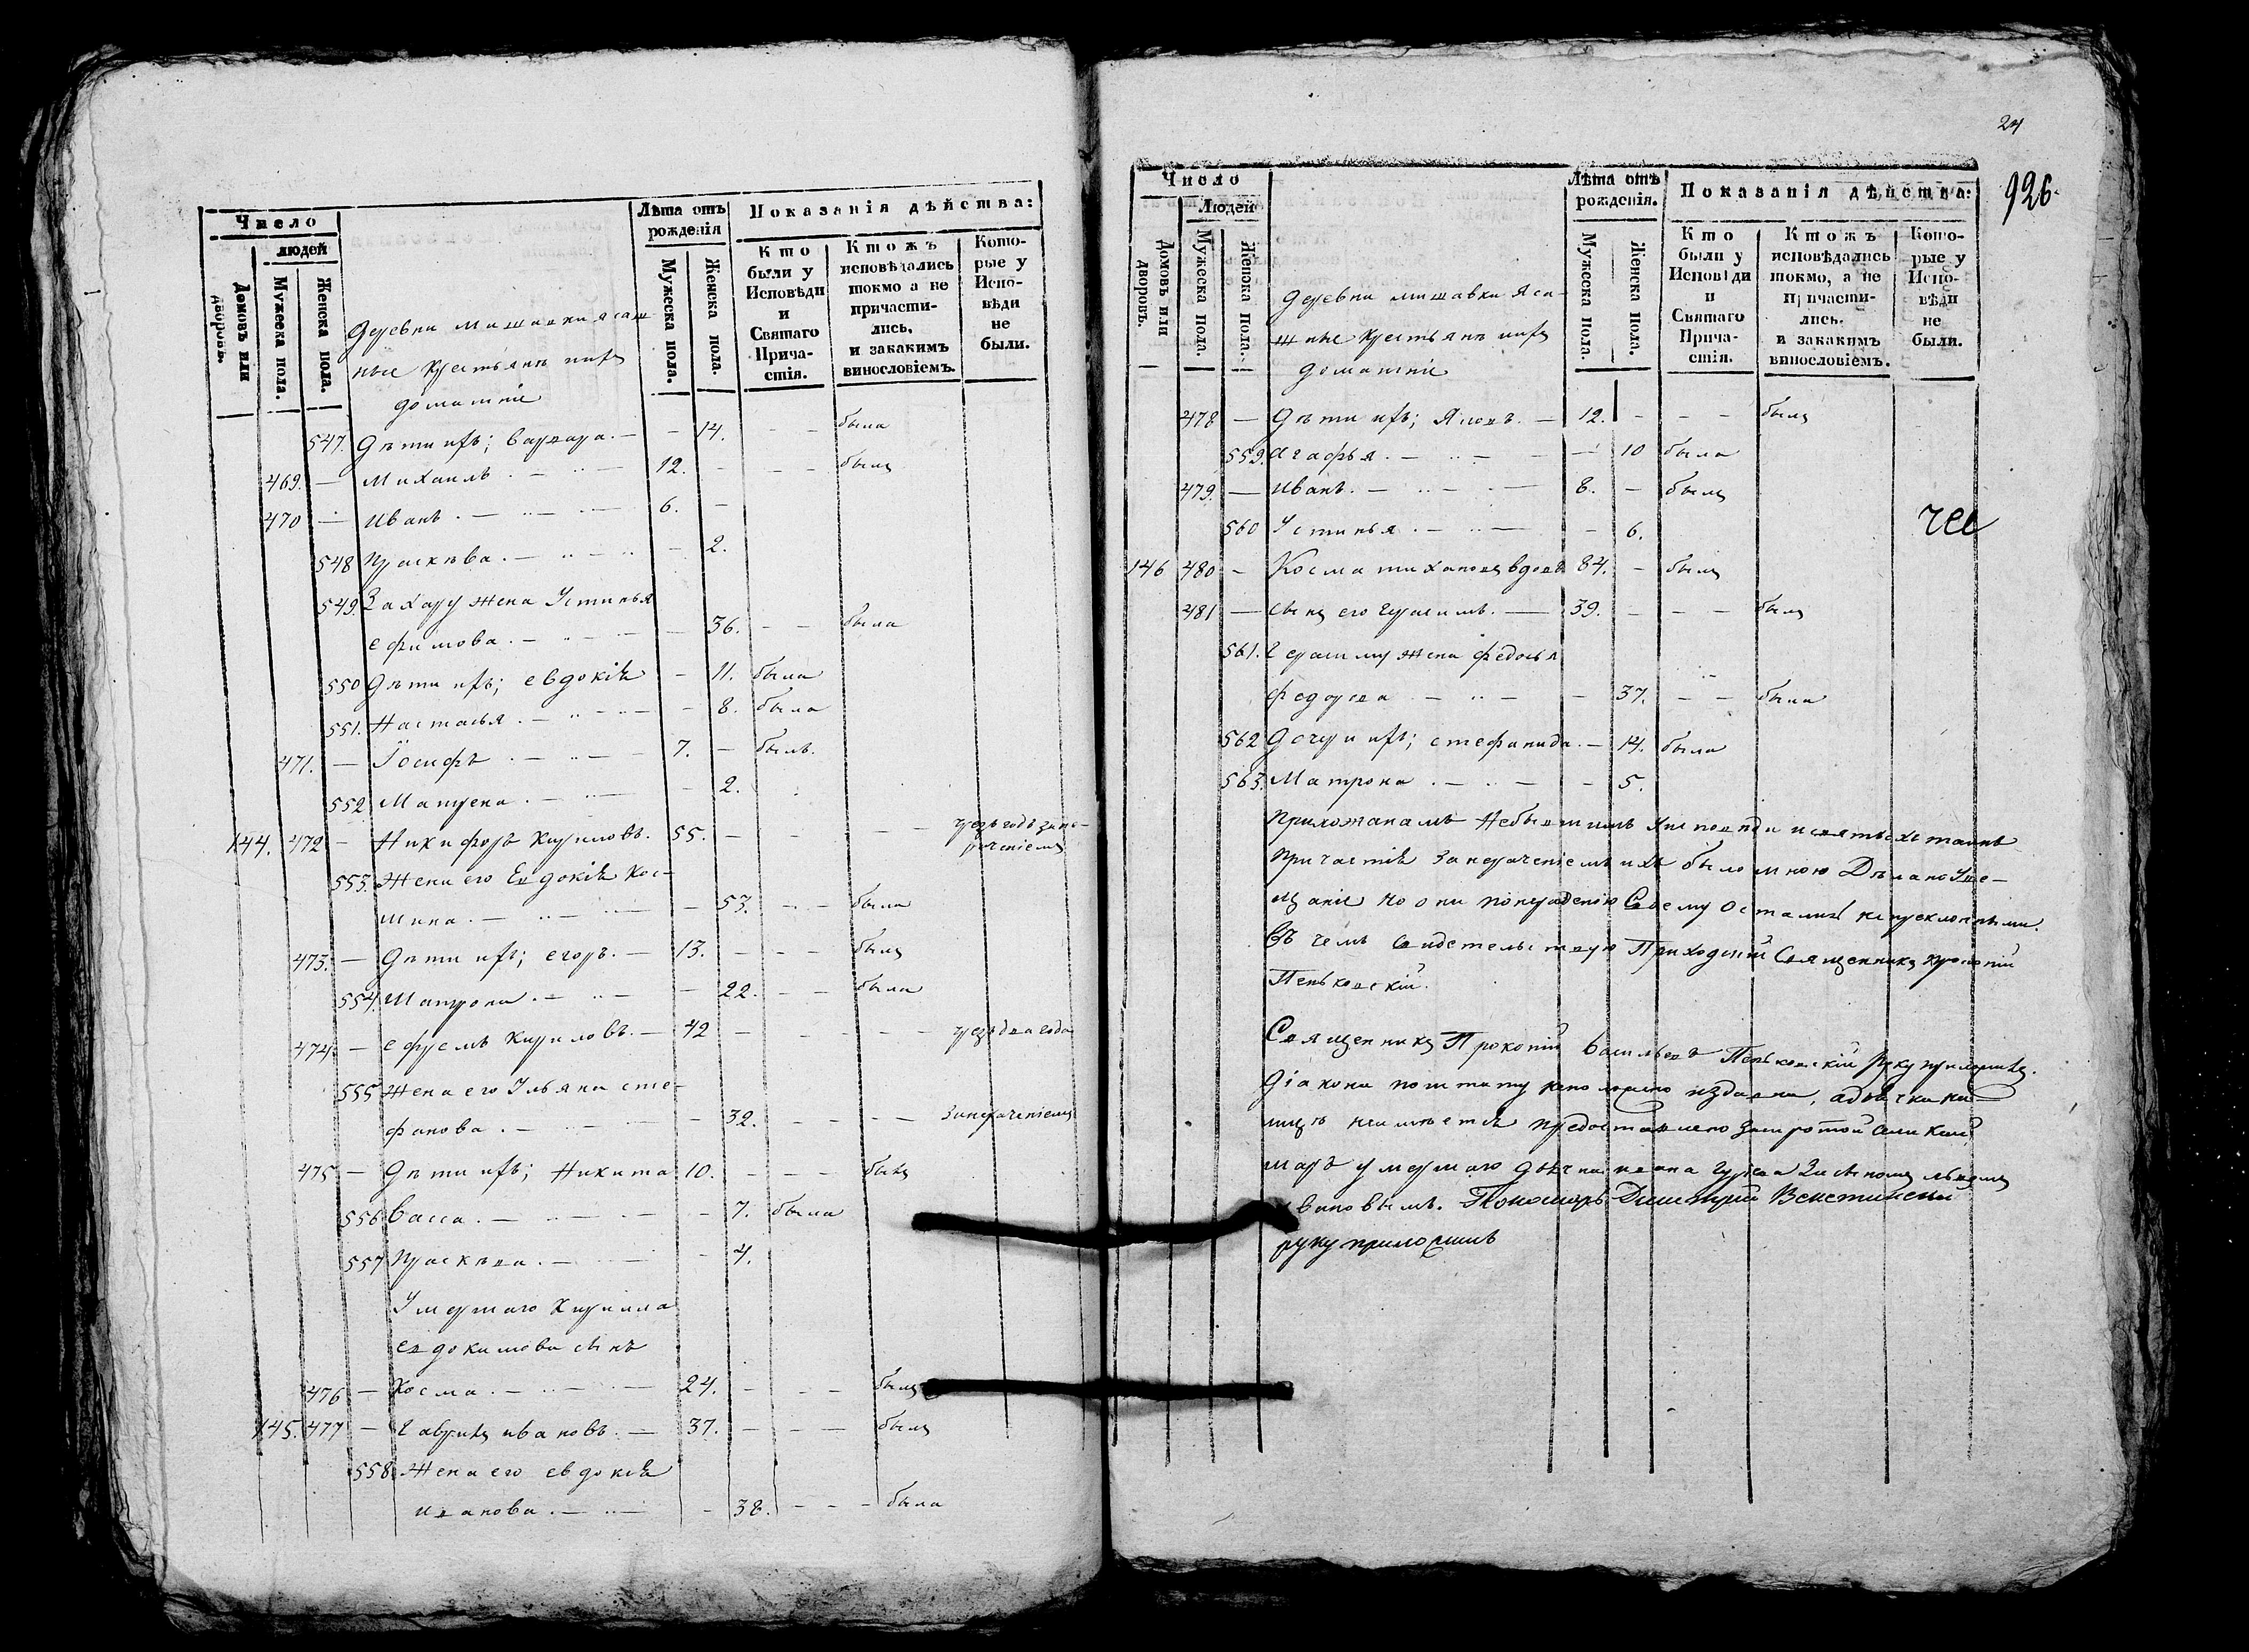 Число
людей
Домовъ или дворовъ.
Мужеска пола.
Женска пола.
Лѣта отъ рожденія
Мужеска пола.
Женска пола.
Показанія дѣйства:
Кто были у Исповѣди и Святаго Прича-стія.
Ктожъ исповѣдались токмо а не причасти-лись, и закакимъ винословіемъ.
Кото-рые у Испо-вѣди не были.
деревни Мишавки ясаш
ные крестьянъ ихъ
домашніе
547. Дѣти ихъ; варвара. — — 14. — — была
469. — Михаилъ. — 12. — — — былъ
470 — Иванъ. — 6. —
548 Прасковья. — — 2.
549. Захару жена Устинья
ефимова. — — 36. — — была
550 Дѣти ихъ; евдокія — 11. была
551. Настасья. — — 8. была
471. — Іосифъ. — 7. — былъ.
552 Матрена. — — 2.
144. 472 — Никифоръ кириловъ. 55. — — — — чрезъ годъ за не-
раченіемъ
553. Жена его Евдокія Кос-
мина. — — 53. — — была
473. — Дѣти ихъ; егоръ. — 13. — — — былъ
554. Матрона. — — 22. — — была
474. — ефремъ кириловъ. — 42 — — — — чрезъ два года
555 Жена его Ульяна сте-
фанова. — — 32. — — — — занераченіемъ
475 — Дѣти ихъ; Никита 10. — — — былъ
556 Васса. — — 7. была
557 Прасковья. — — 4.
Умершаго кирилла
евдокимова сынъ
476 — Косма. — 24. — — — былъ
145. 477 — Гаврилъ ивановъ. — 37. — — — былъ
558. Жена его евдокія
иванова. — — 38. — — — была
24
926.
Число
Людей
Домовъ или дворовъ.
Мужеска пола.
Женска пола.
Лѣта отъ рожденія.
Мужеска пола.
Женска пола.
Показанія дѣйства:
Кто были у Исповѣди и Святаго Прича-стія.
Ктожъ исповѣдались токмо, а не причасти-лись. и закакимъ винословіемъ.
Кото-рые у Испо-вѣди не были.
деревни мишавки яса-
шные крестьянъ ихъ
домашніе
478 — Дѣти ихъ; Яковъ. — 12. — — — былъ
559. Агафья. — — 10 была
479. — Иванъ. — 8. — былъ
560 Устинья. — — 6.
146 480 — Косма тихановъ вдовъ 84. — былъ
481 — сынъ его Герасимъ. — 39. — — — былъ
561. Герасиму жена федосья
федорова — — 37. — — была
562 Дочери ихъ; стефанида. — 14. была
563. Матрона. — — 5.
Прихожанамъ Небывшимъ у исповѣди и святыхъ таинъ
Причастія за нераченіемъ ихъ было мною Дѣлано уве-
щаніе но они по нерадению Своему остались непреклонными.
Въ чемъ свидетельствую Приходскій Священникъ Прокопій
Пеньковскій.
Священникъ Прокопій Васильевъ Пеньковскій руку приложилъ.
Діакона по штату неположено издавна, а дьячка
умершаго дьячка ивана
ивановымъ. Пономарь Димитрий
руку приложилъ